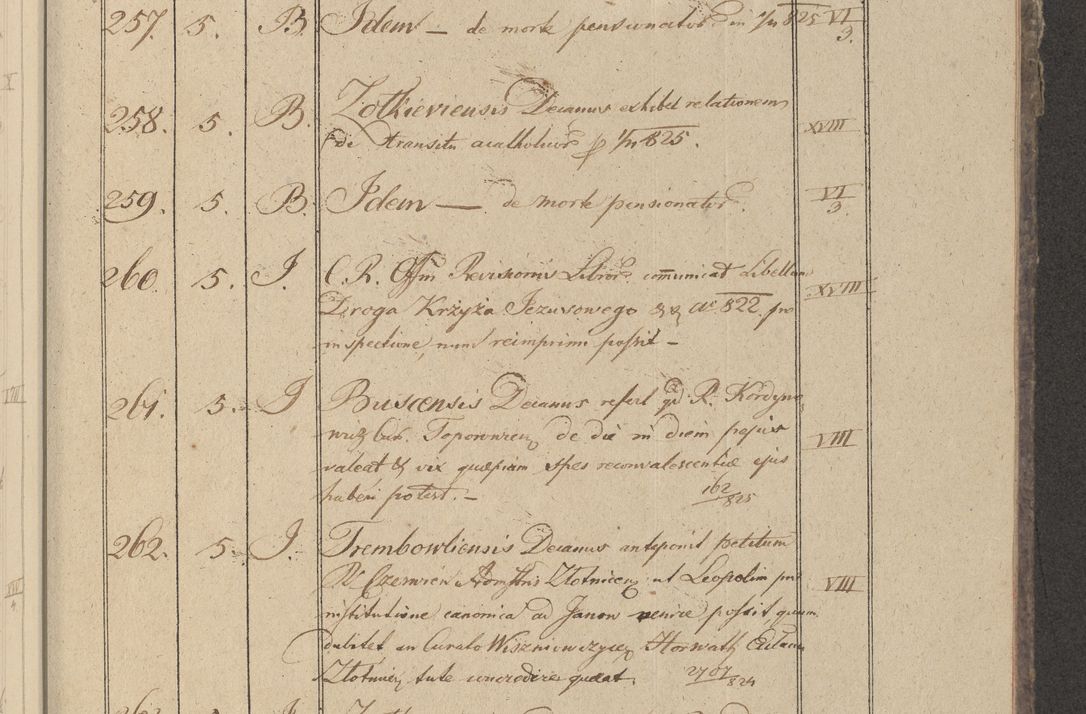 257. 5. B. Idem — de morte pensionator in 1/n 825 VI/3.
258. 5. B. Zołkieviensis Decanus exhibet relationem
de transitu acatholicor p 1/n 825. XVIII
259. 5. B. Idem — de morte pensionator. VI/3.
260. 5. I. C. R. Offm Revisionis Libror communicat Libellum
Droga Krzyża Jezusowego & & de 822. pro XVIII
inspectione, num reimprimi possit —
261. 5. I Buscensis Decanus refert qd R. Kordyno
wicz Cur. Toporowien de die in diem pejus VIII
valeat & vix quaepiam spes reconvalescentiae ejus
haberi potest. — 162/825
262. 5. I. Trembowliensis Decanus anteponit petitum
R Czemren Admstris Złotnicen, ut Leopolim pro VIII
institutione canonica ad Janow venire possit, quum
dubitet an Curato Wiszniowczycen Horwath
Złotnicen tute concredere queat. 2707/824